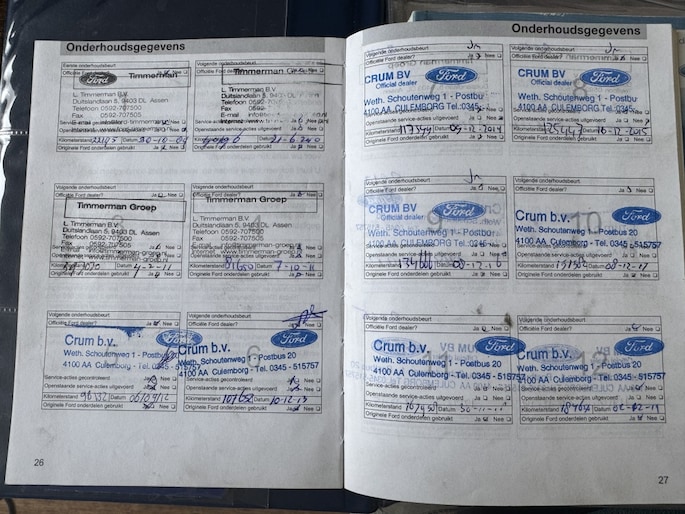 Onderhoudsgegevens
Eerste onderhoudsbeurt
Officiële Ford dealer? Ja Nee
Ford Timmerman
L. Timmerman B.V.
Duitslandlaan 5, 9403 DL Assen
Telefoon 0592-707500
Fax 0592-707505
Kilometerstand Datum 30-10-09
Originele Ford onderdelen gebruikt Ja Nee
Volgende onderhoudsbeurt
Officiële Ford dealer? Ja Nee
Timmerman
L. Timmerman B.V.
Duitslandlaan 5, 9403 DL Assen
Telefoon 0592-707500
Fax 0592-
Kilometerstand Datum
Originele Ford onderdelen gebruikt Ja Nee
Volgende onderhoudsbeurt
Officiële Ford dealer? Ja Nee
Timmerman Groep
3
L. Timmerman B.V.
Duitslandlaan 5, 9403 DL Assen
Telefoon 0592-707500
Fax 0592-707505
Datum 4-2-11
Originele Ford onderdelen gebruikt Ja Nee
Volgende onderhoudsbeurt
Officiële Ford dealer? Ja Nee
Timmerman Groep
4
L. Timmerman B.V.
Duitslandlaan 5, 9403 DL Assen
Telefoon 0592-707500
Fax 0592-707505
Kilometerstand 81650 Datum 7-10-11
Originele Ford onderdelen gebruikt Ja Nee
Volgende onderhoudsbeurt
Officiële Ford dealer? Ja Nee
Crum b.v. Ford
Weth. Schoutenweg 1 - Postbus 20
4100 AA Culemborg - Tel. 0345 - 515757
Service-acties gecontroleerd Ja Nee
Openstaande service-acties uitgevoerd Ja Nee
Kilometerstand Datum
Originele Ford onderdelen gebruikt Ja Nee
Volgende onderhoudsbeurt
Officiële Ford dealer? Ja Nee
6
Crum b.v. Ford
Weth. Schoutenweg 1 - Postbus 20
4100 AA Culemborg - Tel. 0345 - 515757
Service-acties gecontroleerd Ja Nee
Openstaande service-acties uitgevoerd Ja Nee
Kilometerstand Datum 10-12-13
Originele Ford onderdelen gebruikt Ja Nee
26
Onderhoudsgegevens
Volgende onderhoudsbeurt
Officiële Ford dealer? Ja Nee
CRUM BV Ford
Official dealer
Weth. Schoutenweg 1 - Postbu
4100 AA CULEMBORG Tel. 0345
Openstaande service-acties uitgevoerd Ja Nee
Kilometerstand Datum 09-12-2014
Originele Ford onderdelen gebruikt Ja Nee
Volgende onderhoudsbeurt
Officiële Ford dealer? Ja Nee
8
CRUM BV Ford
Official dealer
Weth. Schoutenweg 1 - Postbu
4100 AA CULEMBORG Tel. 0345
Openstaande service-acties uitgevoerd Ja Nee
Kilometerstand Datum 10-12-2015
Originele Ford onderdelen gebruikt Ja Nee
Volgende onderhoudsbeurt
Officiële Ford dealer? Ja Nee
9
CRUM BV Ford
Official dealer
Weth. Schoutenweg 1 - Postbu
4100 AA CULEMBORG Tel. 0345
Openstaande service-acties uitgevoerd Ja Nee
Kilometerstand 134666 Datum 08-12-16
Originele Ford onderdelen gebruikt Ja Nee
Volgende onderhoudsbeurt
Officiële Ford dealer? Ja Nee
10
Crum b.v. Ford
Weth. Schoutenweg 1 - Postbus 20
4100 AA Culemborg - Tel. 0345 - 515757
Openstaande service-acties uitgevoerd Ja Nee
Kilometerstand Datum 08-12-17
Originele Ford onderdelen gebruikt Ja Nee
Volgende onderhoudsbeurt
Officiële Ford dealer? Ja Nee
11
Crum b.v. Ford
Weth. Schoutenweg 1 - Postbus 20
4100 AA Culemborg - Tel. 0345 - 515757
Openstaande service-acties uitgevoerd Ja Nee
Kilometerstand Datum
Originele Ford onderdelen gebruikt Ja Nee
Volgende onderhoudsbeurt
Officiële Ford dealer? Ja Nee
12
Crum b.v. Ford
Weth. Schoutenweg 1 - Postbus 20
4100 AA Culemborg - Tel. 0345 - 515757
Openstaande service-acties uitgevoerd Ja Nee
Kilometerstand Datum
Originele Ford onderdelen gebruikt Ja Nee
27